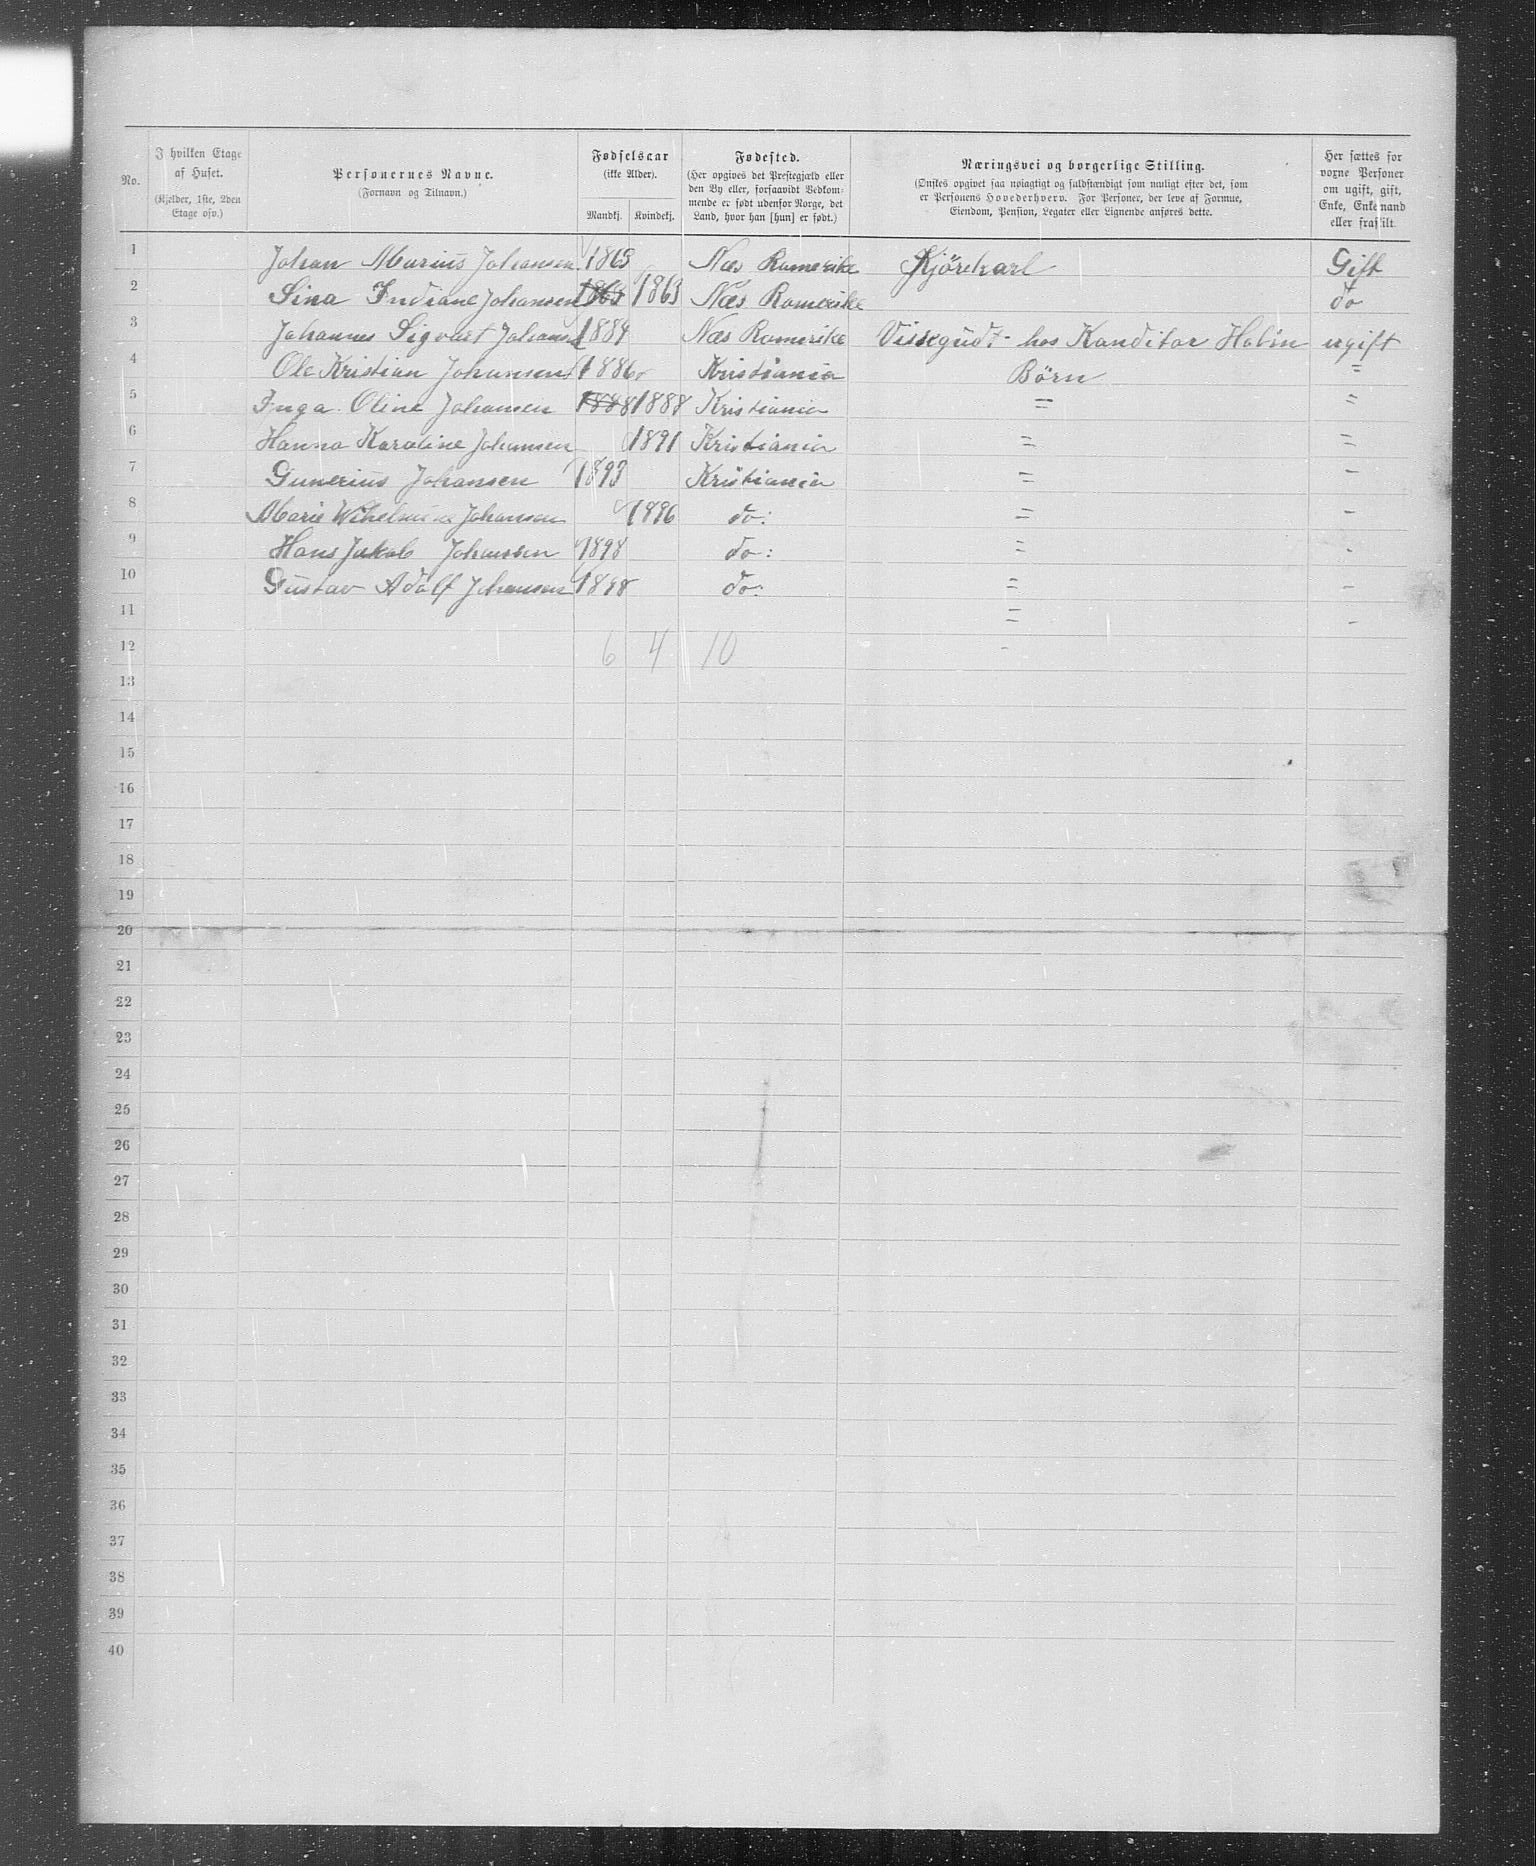 No. I hvilken Etage af Huset. (Kjelder, 1ste, 2den Etage osv.) Personernes Navne. (Fornavn og Tilnavn.) Fødselsaar (ikke Alder). Mandkj. Kvindekj. Fødested. (Her opgives det Prestegjæld eller den By eller, forsaavidt Vedkommende er født udenfor Norge, det Land, hvor han [hun] er født.) Næringsvei og borgerlige Stilling. (Ønskes opgivet saa nøiagtigt og fuldstændigt som muligt efter det, som er Personens Hovederhverv. For Personer, der leve af Formue, Eiendom, Pension, Legater eller Lignende anføres dette. Her sættes for voxne Personer om ugift, gift, Enke, Enkemand eller fraskilt.
1 Johan Marius Johansen 1863 Næs Romerike Kjörekarl Gift
2 Sina Indiane Johansen 1863 1863 Næs Romerike do
3 Johannes Sigvart Johansen 1884 Næs Romerike Vissegudt hos Kanditor ugift
4 Ole Kristian Johansen 1886 Kristiania Börn "
5 Inga Oline Johansen 1888 1888 Kristiania " "
6 Hanna Karoline Johansen 1891 Kristiania " "
7 Gunerius Johansen 1893 Kristiania " -
8 Marie Wilhelmine Johansen 1896 do: " -
9 Hans Jakob Johansen 1898 do: " -
10 Gustav Adolf Johansen 1898 do: " -
11 " -
12 6 4 10 -
13
14
15
16
17
18
19
20
21
22
23
24
25
26
27
28
29
30
31
32
33
34
35
36
37
38
39
40